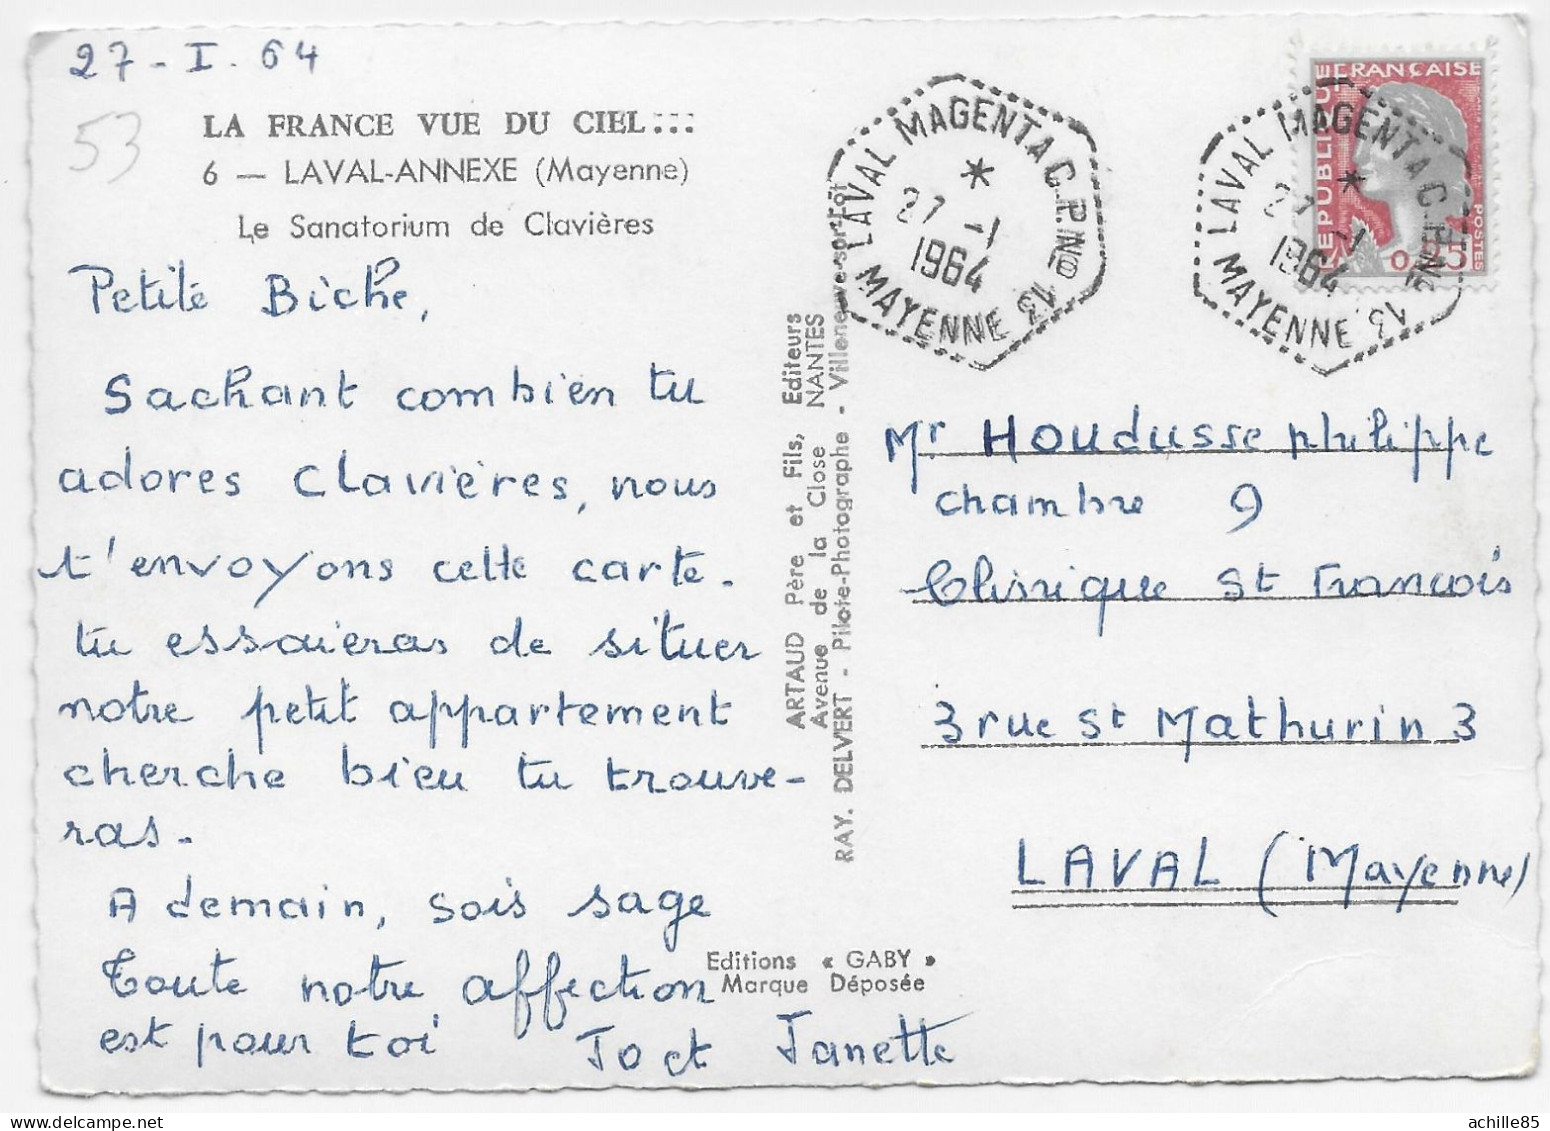 27 - I. 64
53
LA FRANCE VUE DU CIEL...
6 — LAVAL-ANNEXE (Mayenne)
Le Sanatorium de Clavières
Petite Biche,
Sachant combien tu
adores Clavières, nous
t'envoyons cette carte.
tu essaieras de situer
notre petit appartement
cherche bien tu trouve-
ras.
A demain, sois sage
Toute notre affection
est pour toi Jo et Janette
ARTAUD Père et Fils, Editeurs
Avenue de la Close NANTES
RAY. DELVERT - Pilote-Photographe - Villeneuve-sur-Lot
Editions « GABY »
Marque Déposée
LAVAL MAGENTA C.P. No 13
27 -1
1964
MAYENNE
LAVAL MAGENTA C.P. No 13
27 -1
1964
MAYENNE
REPUBLIQUE FRANÇAISE
0,25
POSTES
Mr Houdusse philippe
chambre 9
Clinique St Francois
3 rue St Mathurin 3
LAVAL (Mayenne)
achille85